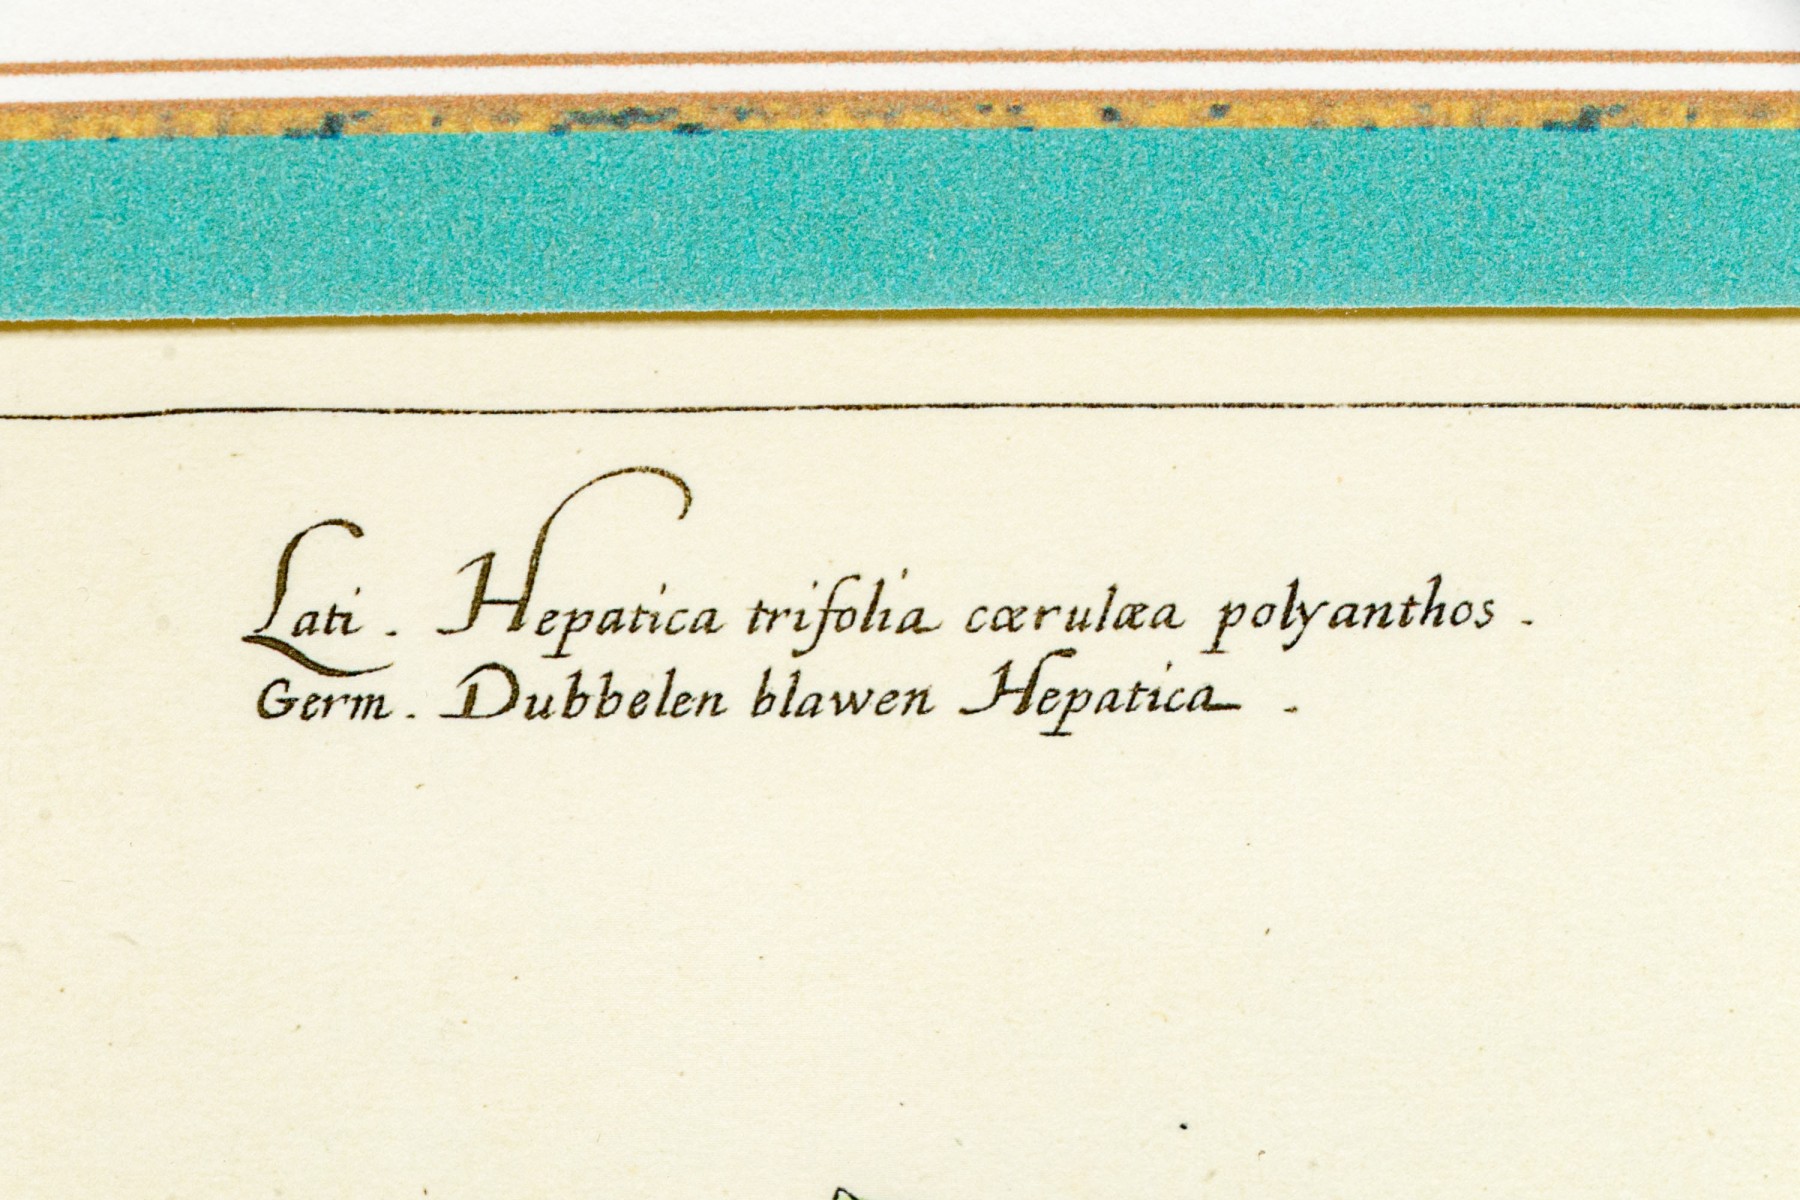 Lati. Hepatica trifolia cærulæa polyanthos.
Germ. Dubbelen blawen Hepatica.